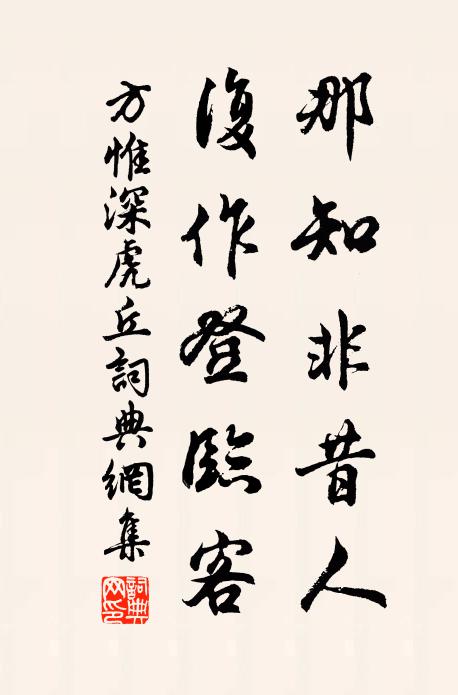 那知非昔人
復作登臨客
方惟深虎丘詞典網集
詞典网印